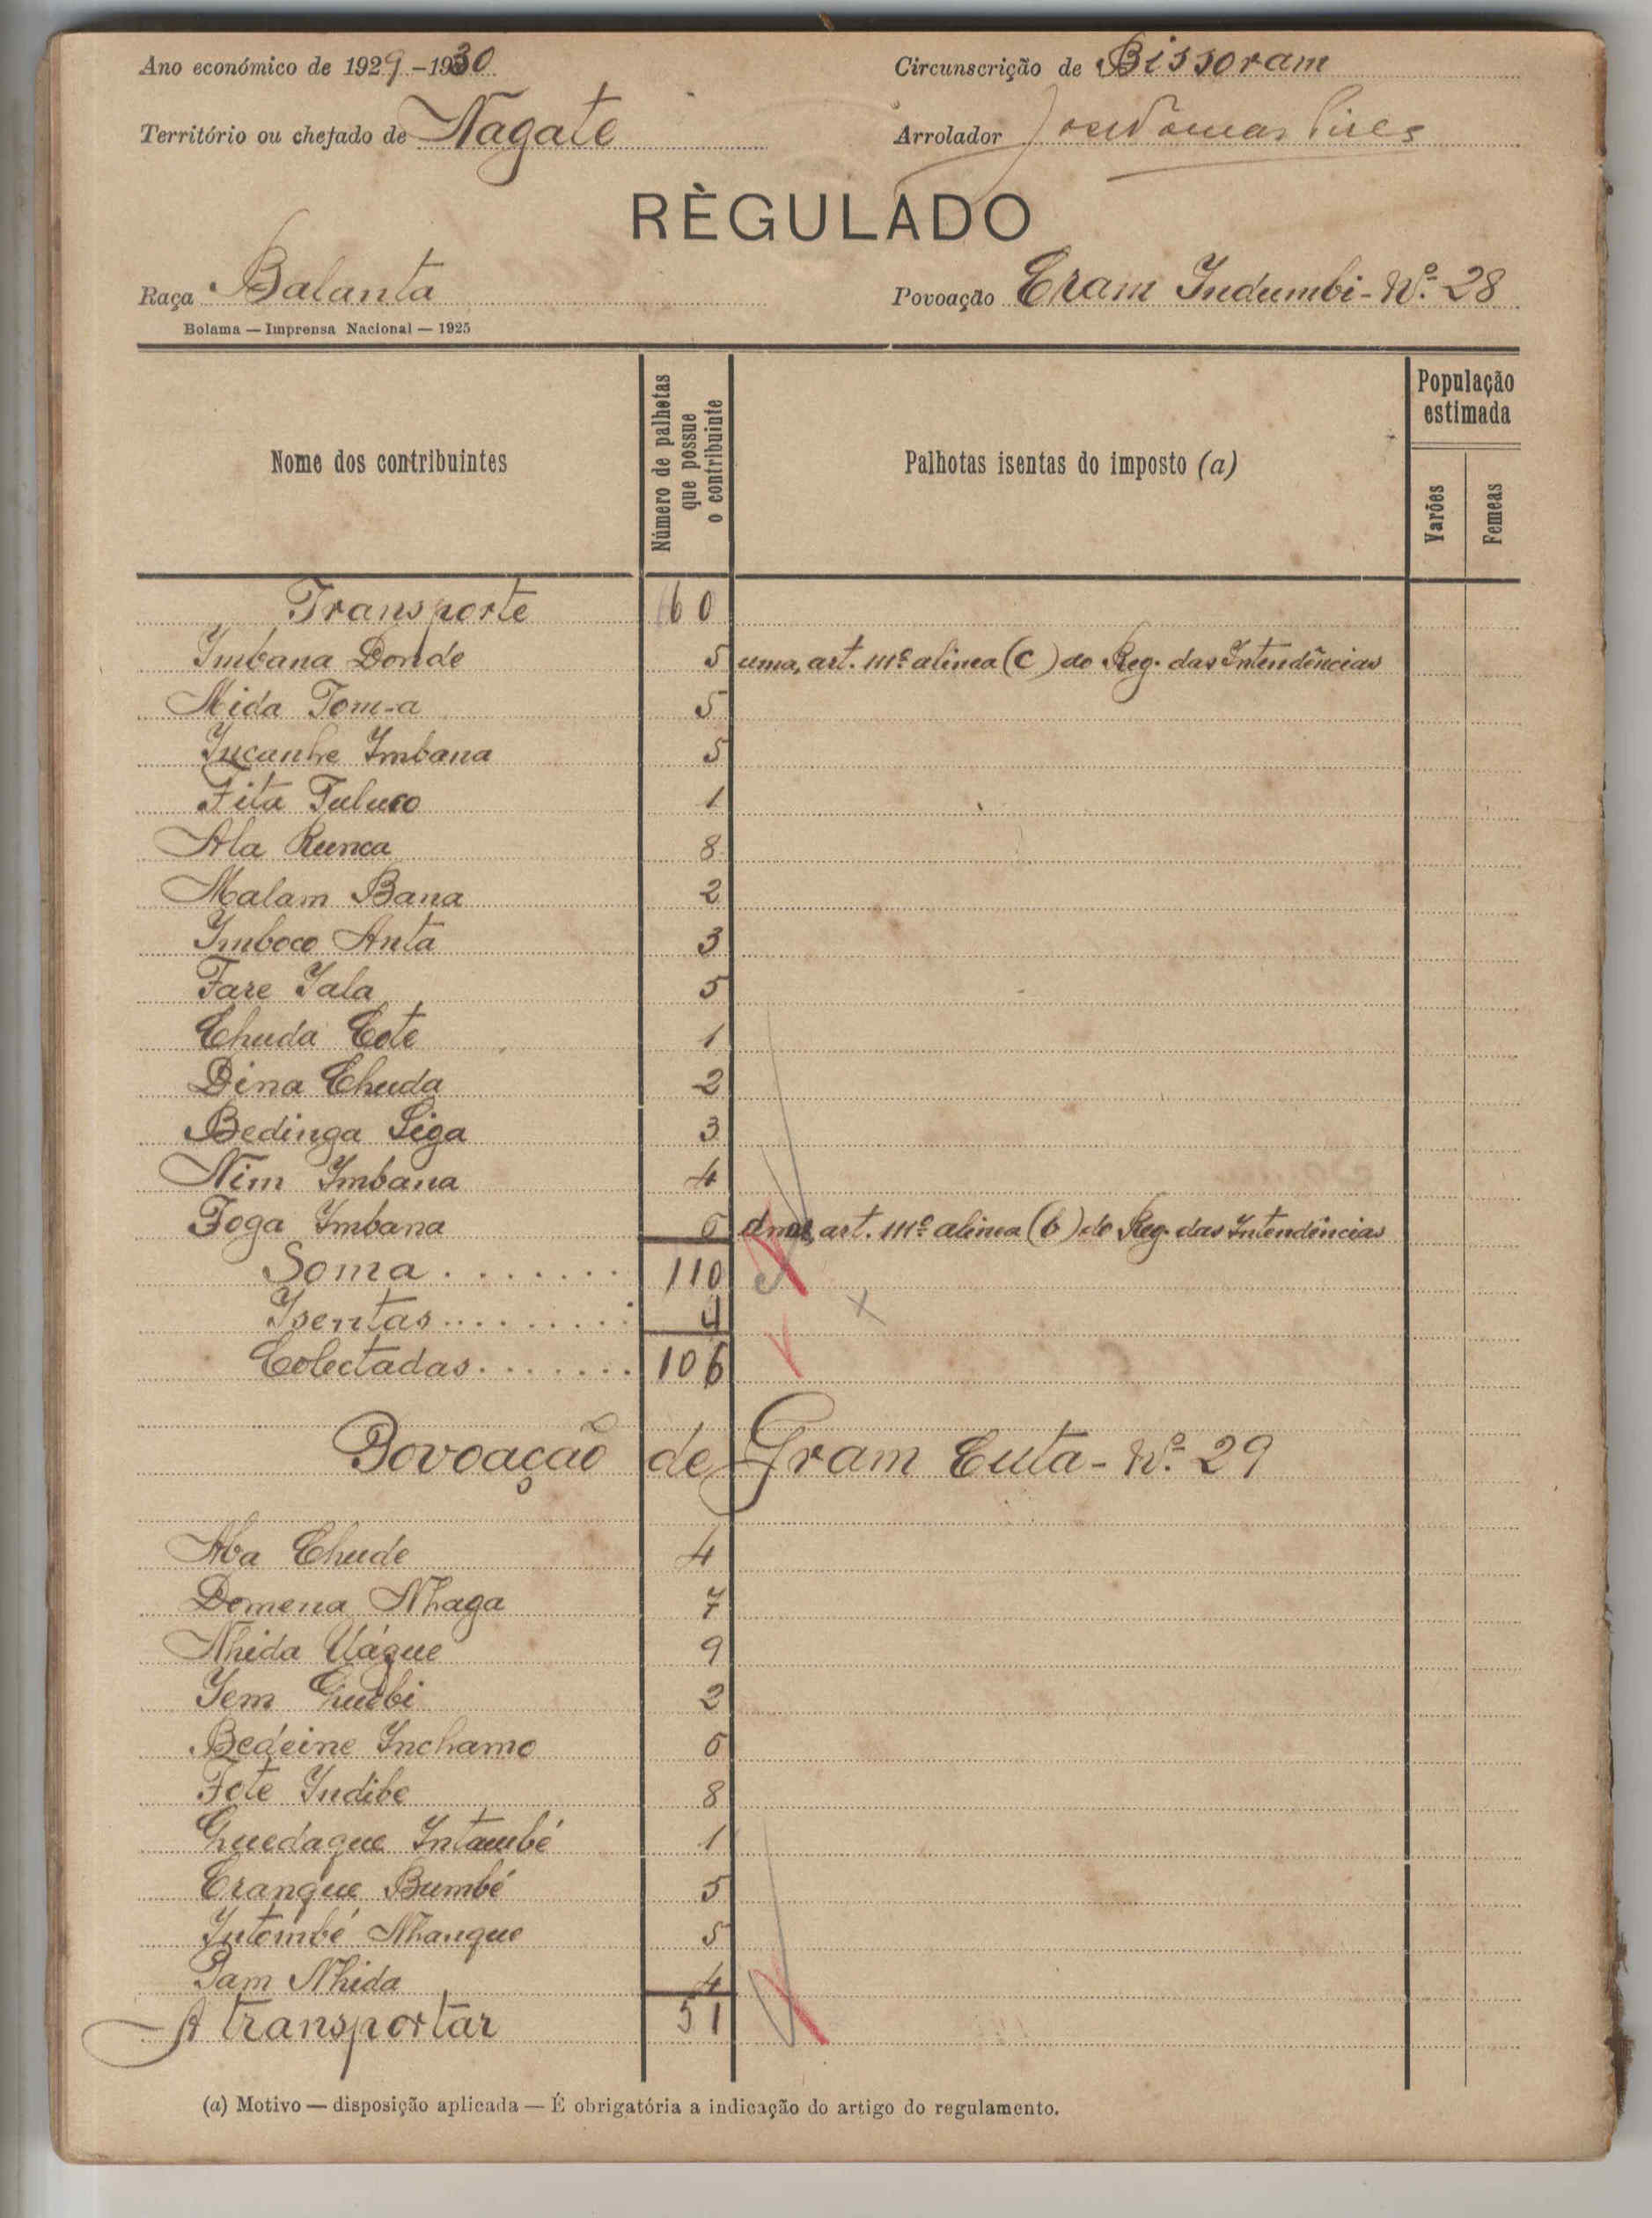 Ano económico de 1929-1930
Circunscrição de Bissoram
Território ou chefado de Nagate
Arrolador
RÈGULADO
Raça Balanta
Povoação Cram Indumbi - Nº 28
Bolama — Imprensa Nacional — 1925
Nome dos contribuintes
Número de palhotas que possue o contribuinte
Palhotas isentas do imposto (a)
População estimada
Varões
Femeas
Transporte 60
Imbana Donde 5 uma, art. 111º alinea (c) do Reg. das Intendências
Nida Tom-a 5
Incanhe Imbana 5
Fita Tuluco 1
Ala Runca 8
Malam Bana 2
Imboco Anta 3
Fare Iala 5
Chuda Cote 1
Dina Chuda 2
Bedinga Siga 3
Nim Imbana 4
Foga Imbana 6 art. 111º alinea (b) do Reg. das Intendências
Soma . . . . . . . 110
Isentas . . . . . . . . 4
Colectadas . . . . . . . 106
Povoação de Gram Cuta - Nº 29
Aba Chude 4
Domena Nhaga 7
Nhida Uáque 9
Iem Guebi 2
Bedeine Inchamo 6
Fote Indibe 8
Guedaque Intambé 1
Cranque Bumbé 5
Intombé Nhanque 5
Pam Nhida 4
A transportar 51
(a) Motivo — disposição aplicada — É obrigatória a indicação do artigo do regulamento.